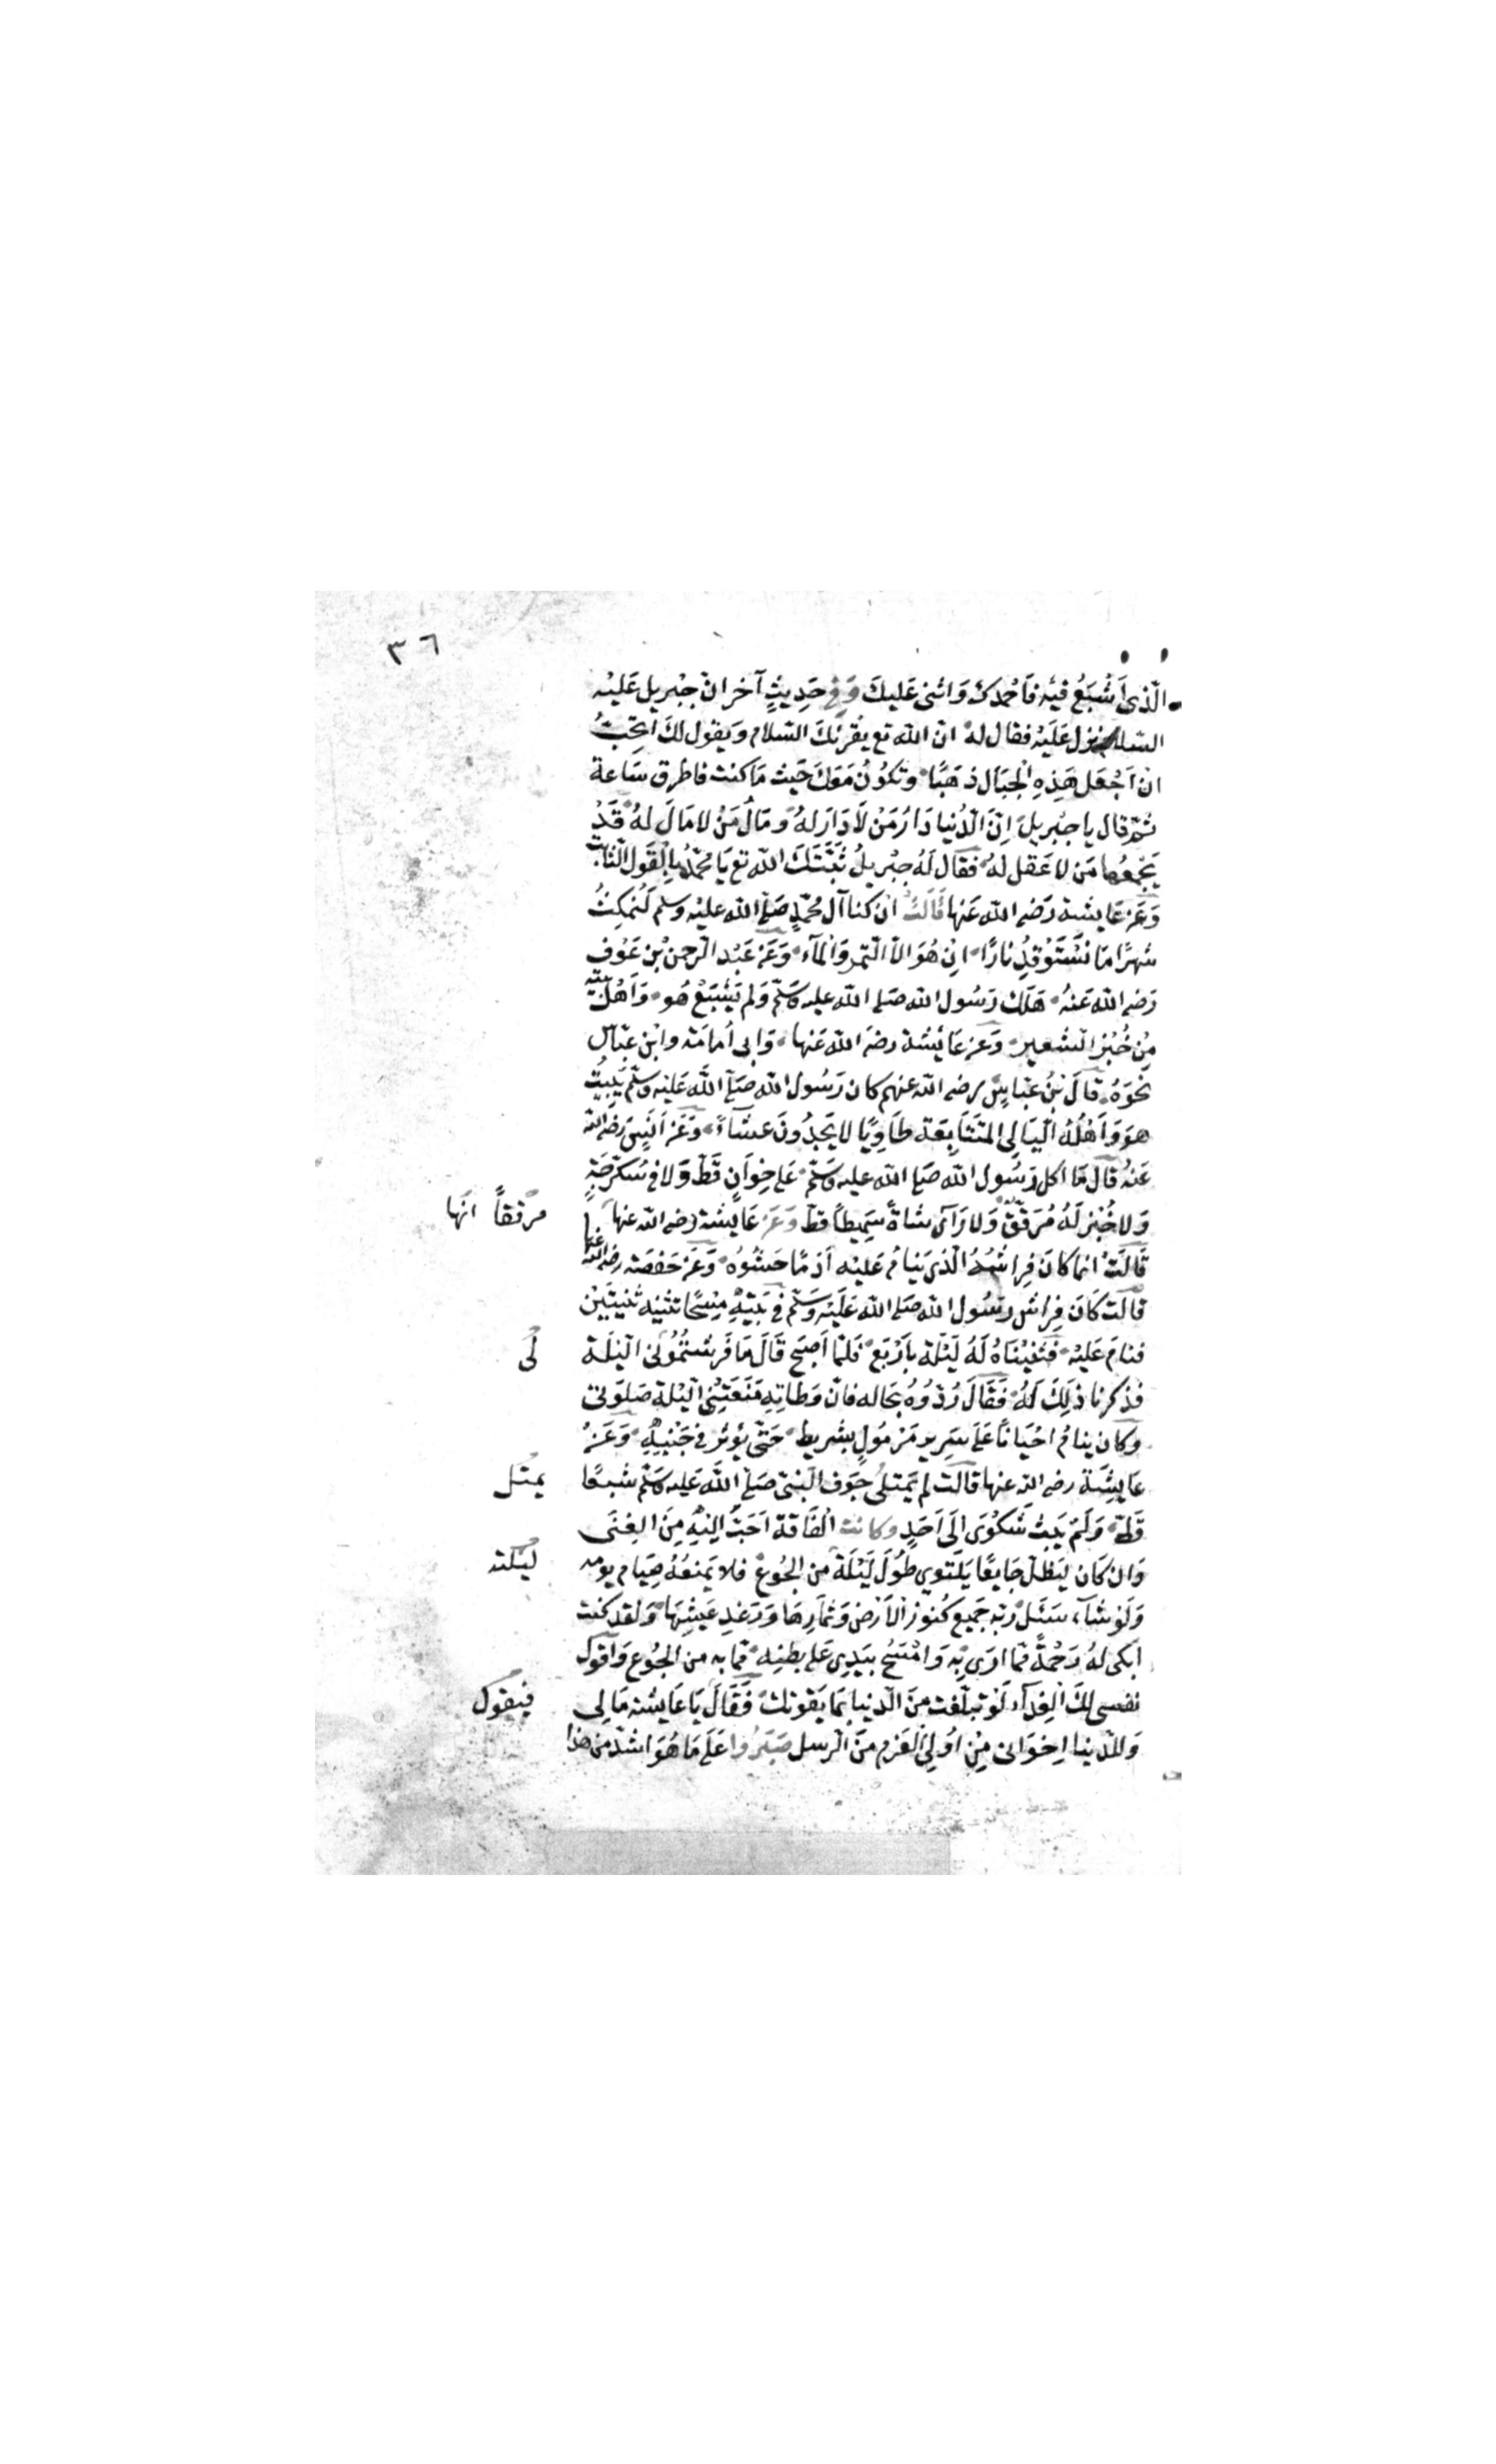 ٣٦
الّذى اَشْبَعُ فيْه فَاَحْمدكَ وَاثنى عَليكَ وَفى حَدِيثٍ آخر انّ جبْريل عَليْه
السّلام نزل عَلَيْه فقال لهُ انّ اللّه تع يقرئكَ السّلام وَيقول لكَ اتحِبّ
انْ اَجْعَل هَذِهِ الجبَال ذهَبًا وَتكوُنُ مَعَكَ حَيث مَا كنت فاطرق سَاعة
ثمّ قال يا جبْريل اِنّ الدُّنيا دَارُ مَنْ لاَ دَارَ لهُ وَمَالُ مَنْ لا مَالَ لهُ قَدْ
يَجْمعُها مَن لا عَقل لهُ فقَال لَهُ جبْريلُ ثبّتَكَ اللّه تع يَا محمّدُ بالقَول الثّابت
وَعَن عَايشة رَضى اللّه عَنها قَالَتْ انْ كنا آل محمّدٍ صَلّى اللّه عليْه وسلم لَنمكثُ
شهرًا مَا نسْتَوْقدُ نارًا انْ هُوَ الاّ التّمر وَالمآء وَعَن عَبْد الرّحمن بْن عَوُف
رَضى اللّه عَنهُ هَلَكَ رَسُول اللّه صَلى اللّه عليه وَسَلّم وَلم يَشْبَعْ هُو وَاَهْل بَيْته
مِنْ خُبْز الشّعير وَعن عَائِشة رضىَ اللّه عَنها وَابى اُمامَة وابْن عبّاس
نحْوَهُ قالَ بْنُ عبّاسٍ رضى اللّه عنهم كان رَسُول اللّه صَلّى اللّه عَليْه وسَلّم يَبيتُ
هوَ وَاَهْلُهُ الّيَالى المتَتَابعَة طَاوِيًا لا يَجدُونَ عشَآءً وَعَن اَنَسٍ رَضى اللّه
عَنهُ قالَ مَا اكل رَسُول اللّه صَلى اللّه عليه وَسَلّم عَلى خِوَانٍ قطّ وَلا فى سُكرّجَةٍ
وَلا خُبْز لَهُ مُرَقّقٌ وَلا رَآى شاةً سَمِيطاً قطّ وَعَن عَايشَة رضى اللّه عنها
مرققاً انها
قَالتْ انما كانَ فِراشهُ الّذى يَنامُ عَليْه اَدَمًا حَشْوُه وَعَن حَفصَة رضى اللّه عنها
قالت كَانَ فِراش رسُول اللّه صَلى اللّه عَلَيْه وَسَلّم فى بَيْتِهِ مِسْحًا نثنيه ثنيتَيْن
فنامَ عَليْه فثنيْنَاهُ لَهُ لَيْلة باَرْبَع فلمّا اَصبَح قَالَ مَا فَرشتمُوُنى الّيْلَة
لى
فذكرنا ذلِكَ لَهُ فَقَالَ رُدّوُهُ بحَاله فانّ وَطاتهِ مَنَعَتْنى الّيْلة صَلوَتى
وَكان ينامُ احْيَاناً عَلى سَرير مَزمُولٍ بشريط حَتّى يؤثر فى جَنْبِهِ وَعَنْ
عَايشَة رضى اللّه عنها قالت لم يَمتلى جَوف النّبىّ صَلّى اللّه عَليه وَسَلّم شبعًا
يمتل
قطّ وَلَمْ يَبثّ شكْوَى الَى اَحَدٍ وكانت الفَاقة اَحَبّ اليْهِ مِنَ الغِنَى
وَان كَان ليَظلّ جَايعًا يَلتوى طُولَ لَيْلَة من الجُوع فلا يَمنَعُهُ صِيَام يومه
ليلته
وَلَوْ شآء سَئَل رَبّه جَميع كُنوُز الاَرْضِ وَثمَارِهَا وَرَغدِ عَيشِهَا وَلقد كنت
ابكى لهُ رَحْمَةً ممّا ارَى بِهِ وَامْسَحُ بيَدِى عَلى بطنِه ممّا به من الجُوع وَاَقول
نفسى لكَ الفِدآء لَوْ تبلّغت منَ الدّنيا بمَا يَقوتك فقَالَ يَا عَايشة مَا لى
فيقول
وَللدّنيا اِخوَانى مِنْ اُولى العَزم منَ الرّسل صَبَرُوا عَلَى مَا هُوَ اشدّ من هذا